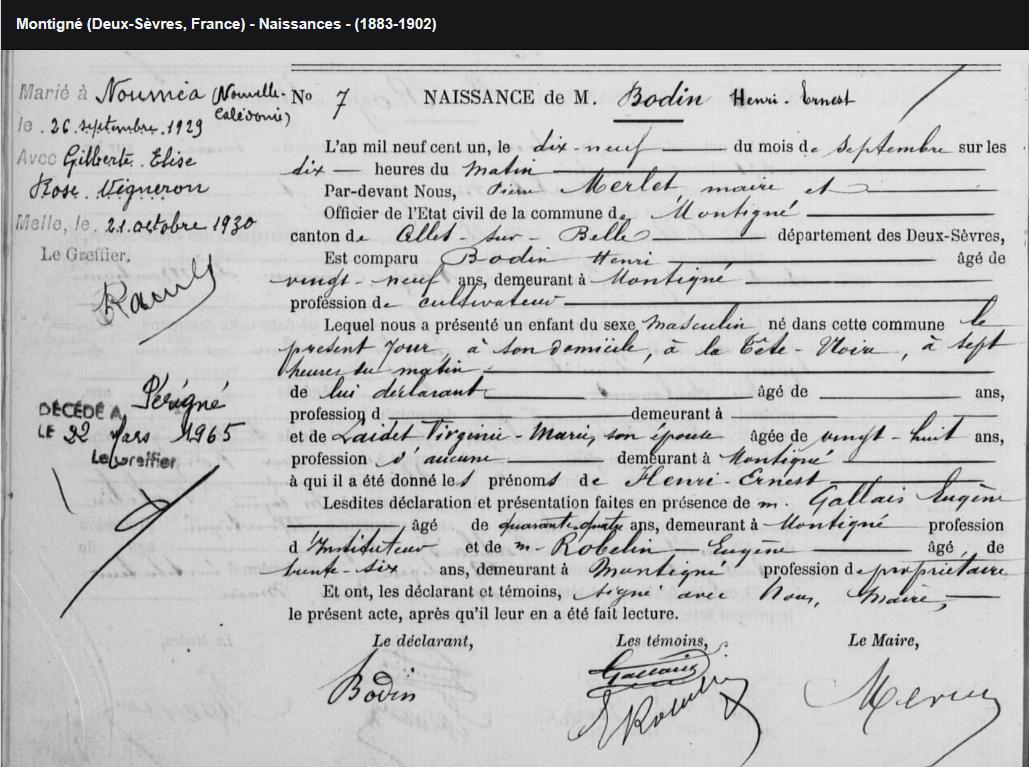 Montigné (Deux-Sèvres, France) - Naissances - (1883-1902)
Marié à Nouméa (Nouvelle-
Calédonie)
le 26 septembre 1929
Avec Gilberte Elise
Rose Vigneron
Melle, le 21 octobre 1930
Le Greffier.
DÉCÉDÉ A Périgné
LE 22 Mars 1965
Le Greffier
No 7 NAISSANCE de M. Bodin Henri-Ernest
L'an mil neuf cent un, le dix-neuf du mois de septembre sur les
dix heures du matin
Par-devant Nous, Pierre Merlet maire et
Officier de l'Etat civil de la commune de Montigné
canton de Celles-sur-Belle département des Deux-Sèvres,
Est comparu Bodin Henri âgé de
vingt-neuf ans, demeurant à Montigné
profession de cultivateur
Lequel nous a présenté un enfant du sexe masculin né dans cette commune le
présent jour, à son domicile, à la Tête-Noire, à sept
heures du matin
de lui déclarant âgé de ans,
profession d demeurant à
et de Laidet Virginie-Marie, son épouse âgée de vingt-huit ans,
profession d'aucune demeurant à Montigné
à qui il a été donné les prénoms de Henri-Ernest
Lesdites déclaration et présentation faites en présence de m. Gallais Eugène
âgé de quarante-quatre ans, demeurant à Montigné profession
d'Instituteur et de m. Robelin Eugène âgé de
trente-six ans, demeurant à Montigné profession de propriétaire
Et ont, les déclarant et témoins, signé avec Nous, Maire,
le présent acte, après qu'il leur en a été fait lecture.
Le déclarant, Les témoins, Le Maire,
Bodin Gallais Merlet
E Robelin